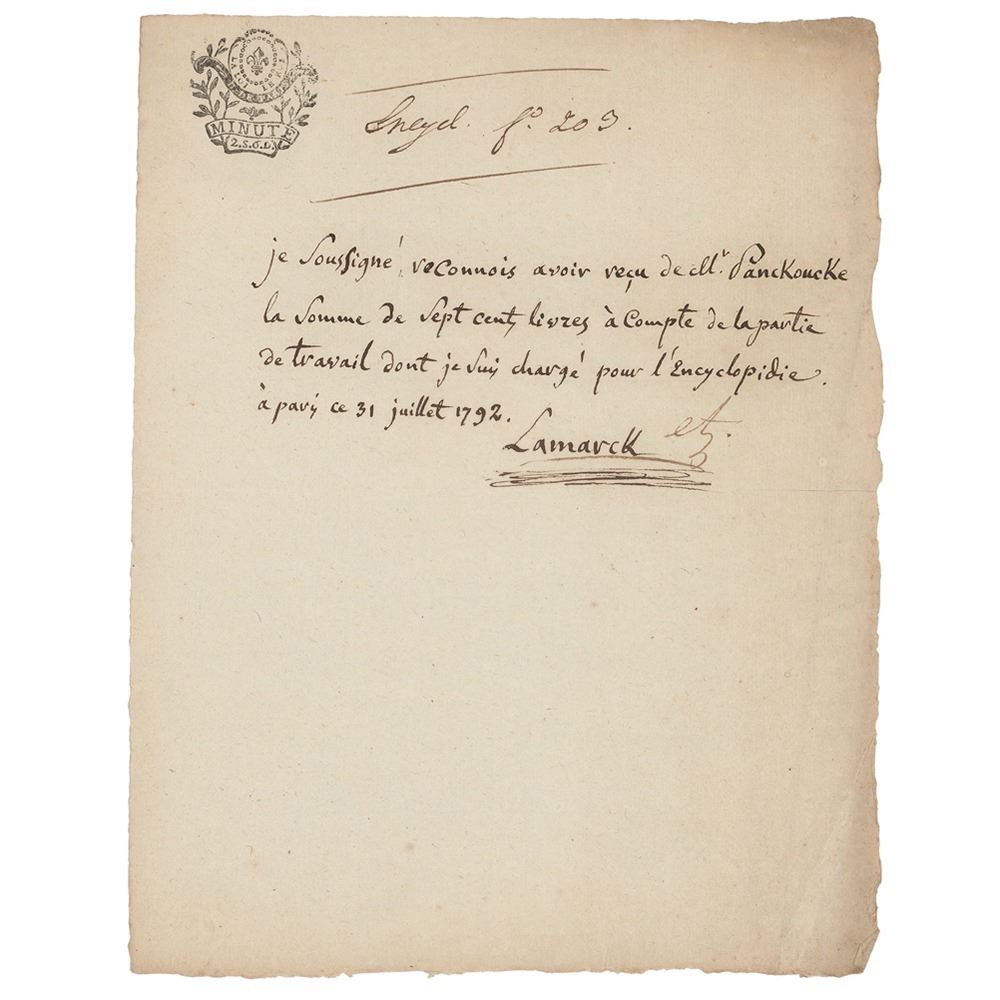 LA LOI LE ROI
MINUTE
2.S.6.D.
Encycl. fo. 203.
je soussigné, reconnois avoir reçu de Mr. Panckoucke
la somme de sept cents livres à compte de la partie
de travail dont je suis chargé pour l'Encyclopidie.
à paris ce 31 juillet 1792.
Lamarck